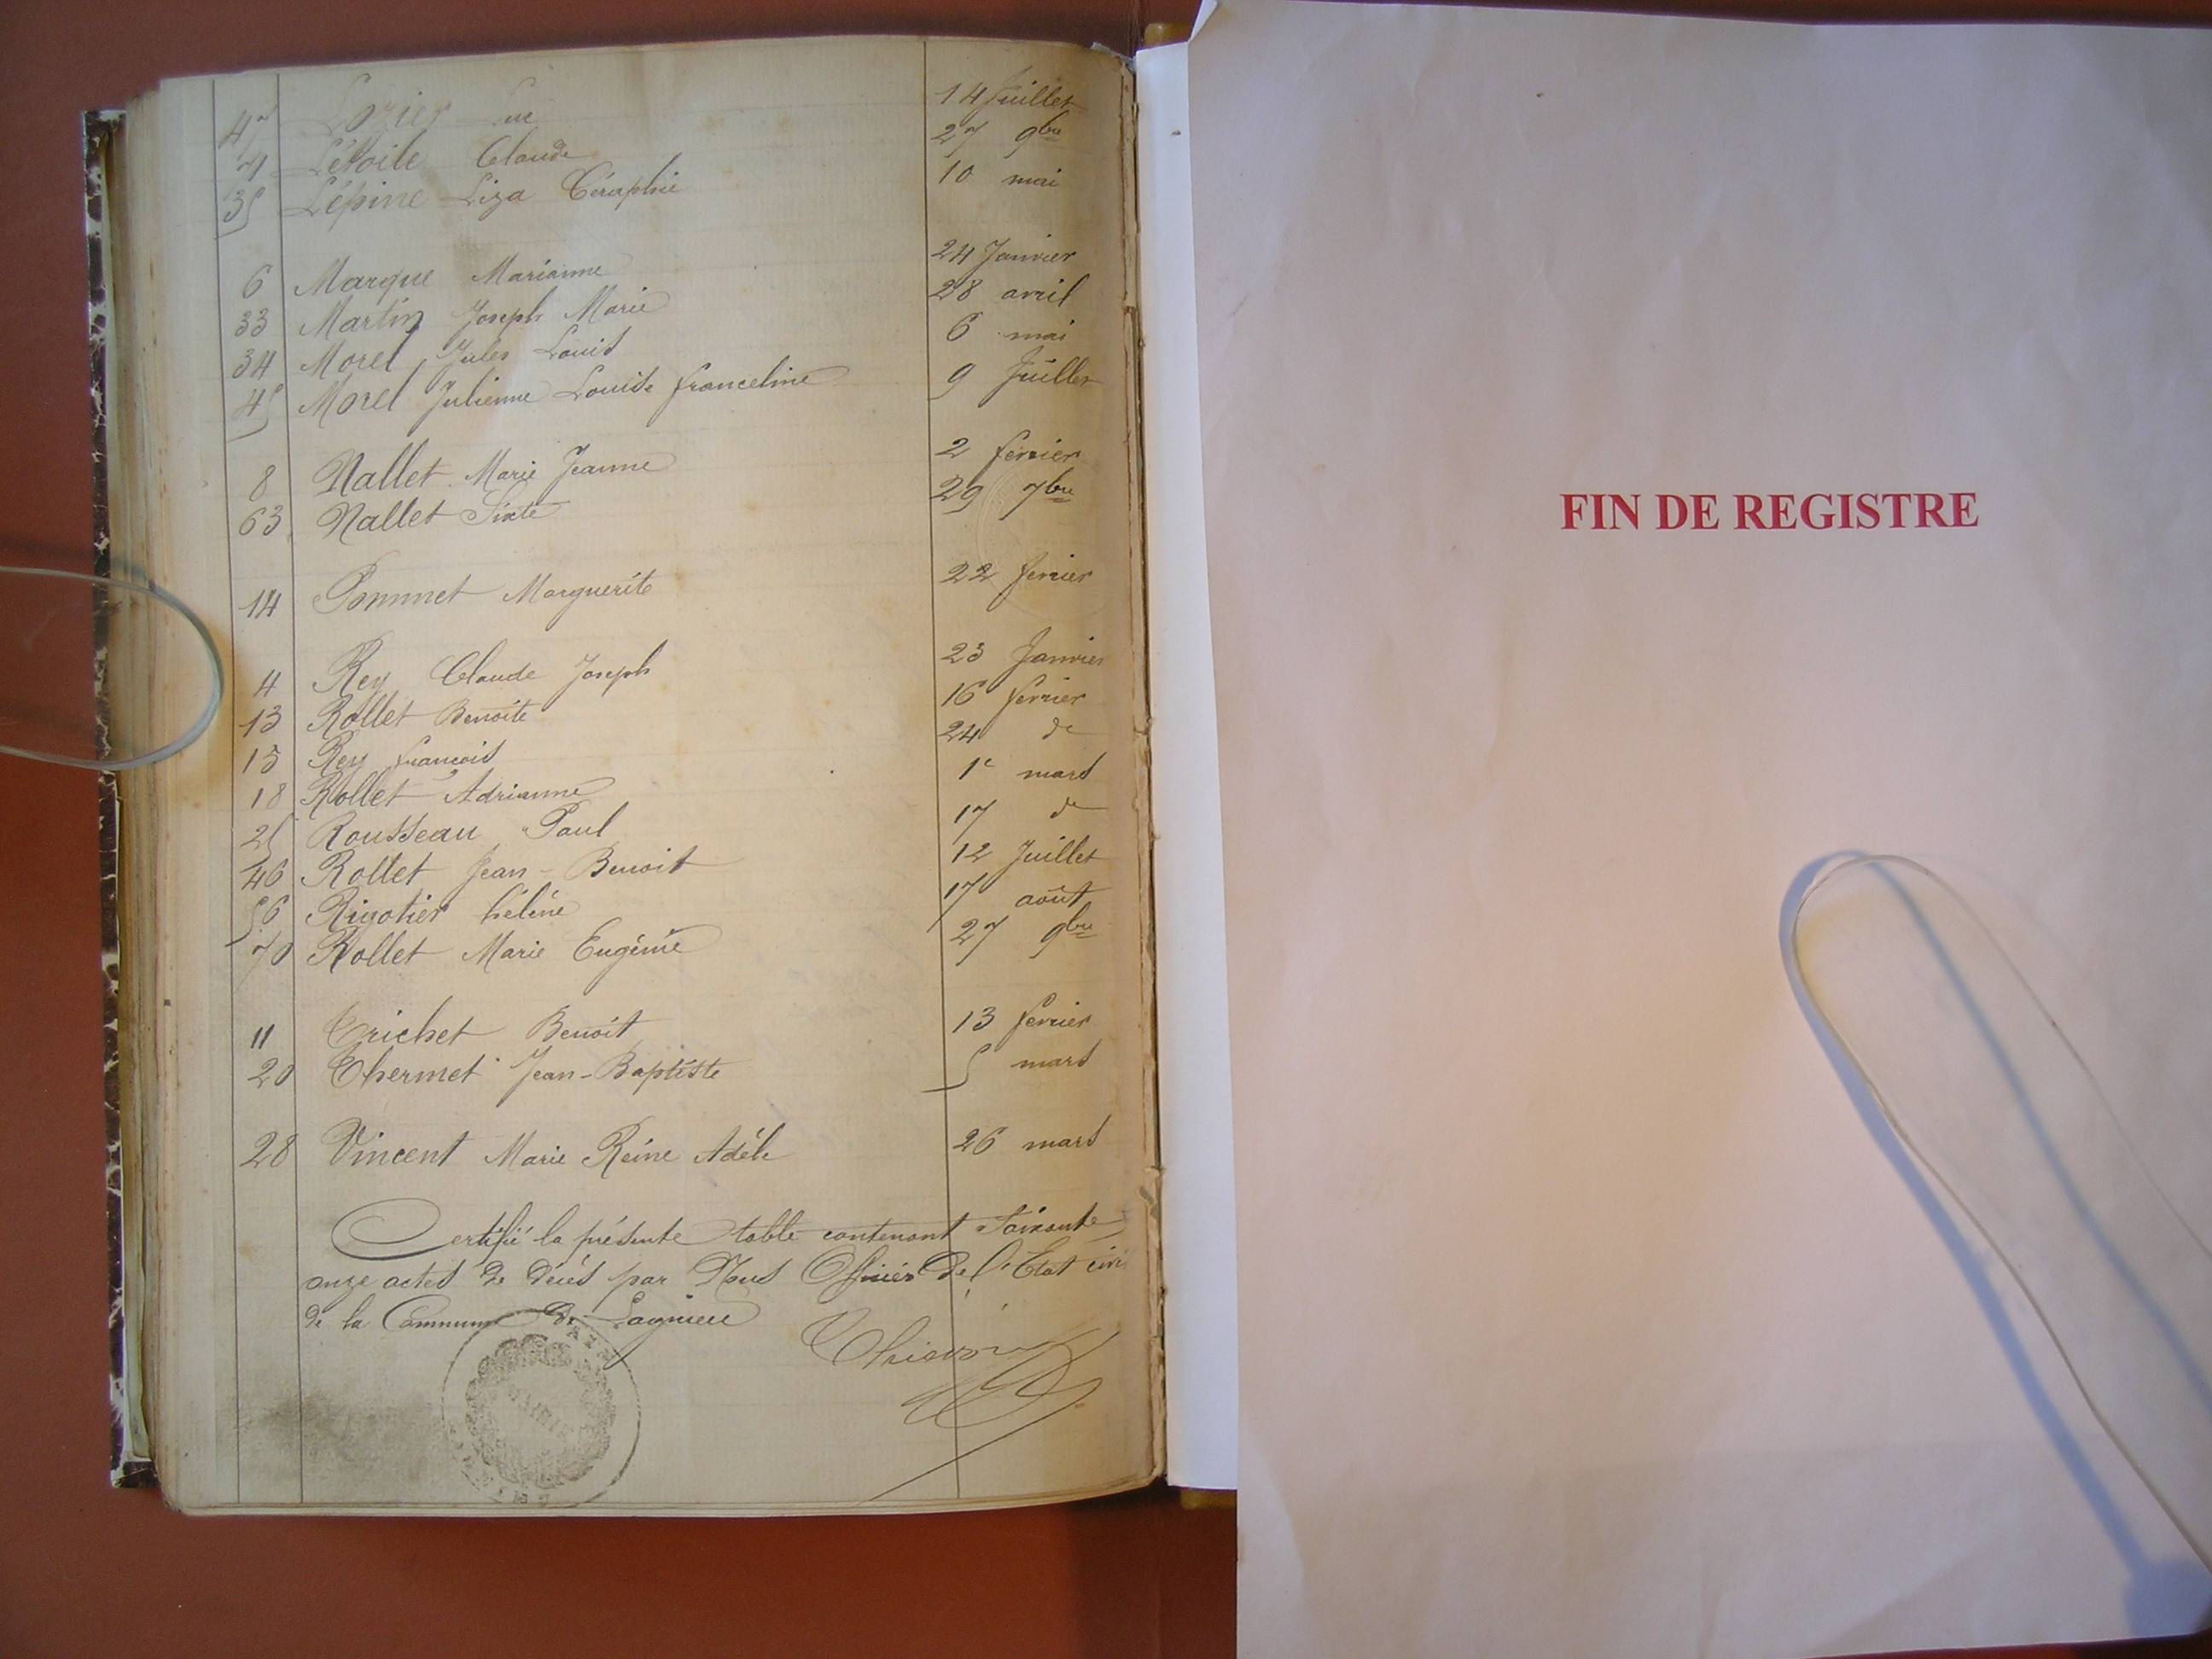 47 Lozier Luc 14 Juillet
71 Létoile Claude 27 9bre
35 Lépine Liza Céraphie 10 mai
6 Marque Marianne 24 Janvier
33 Martin Joseph Marie 28 avril
34 Morel Jules Louis 6 mai
45 Morel Julienne Louise franceline 9 Juillet
8 Nallet Marie Jeanne 2 fevrier
63 Nallet Sixte 29 7bre
14 Pommet Marguerite 22 fevrier
4 Rey Claude Joseph 23 Janvier
13 Rollet Benoite 16 fevrier
15 Rey françois 24 do
18 Rollet Adrianne 1e mars
25 Rousseau Paul 17 do
46 Rollet Jean-Benoit 12 Juillet
56 Rigotier hélène 17 août
70 Rollet Marie Eugénie 27 9bre
11 Trichet Benoit 13 fevrier
20 Thermet Jean-Baptiste 5 mars
28 Vincent Marie Reine Adèle 26 mars
Certifié la présente table contenant Soixante
onze actes de décès par Nous Officier De l'Etat civil
de la Commune de Lagnieu
MAIRIE
FIN DE REGISTRE